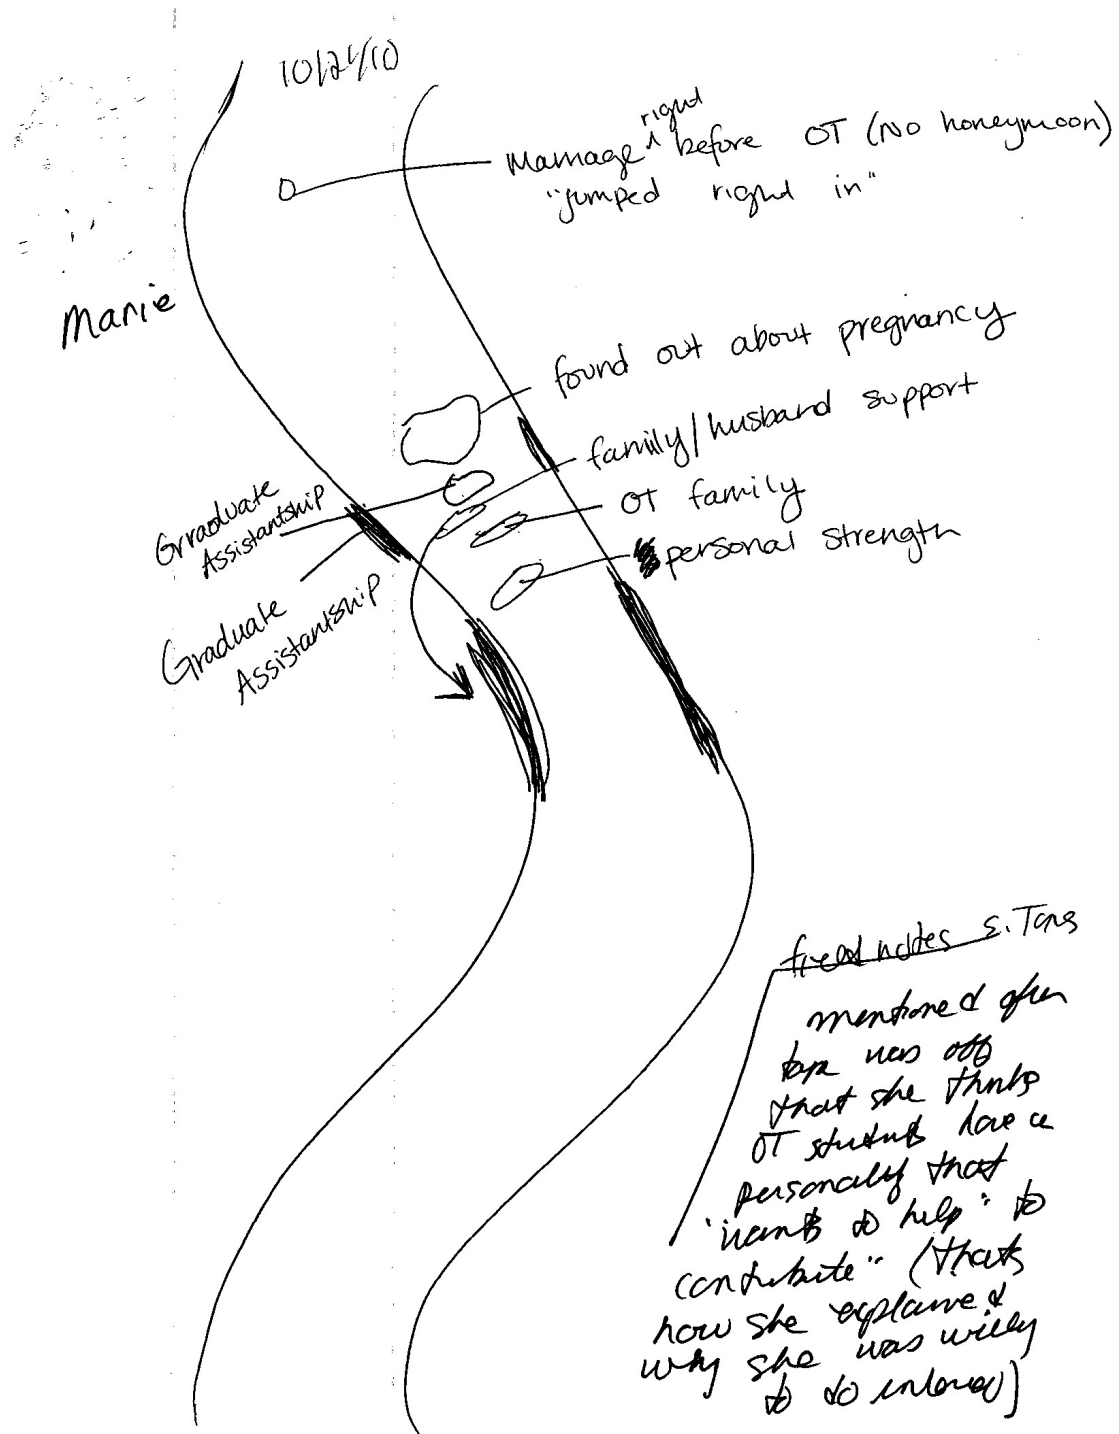 10/24/10
right
Marriage ^ before OT (No honeymoon)
"jumped right in"
Marie
found out about pregnancy
family/husband support
Grraduate
Assistantship
OT family
personal strength
Graduate
Assistantship
field notes S.
mentioned after
tape was off
that she thinks
OT students have a
personality that
"wants to help" to
contribute" (thats
how she explained
why she was willing
to do interview)